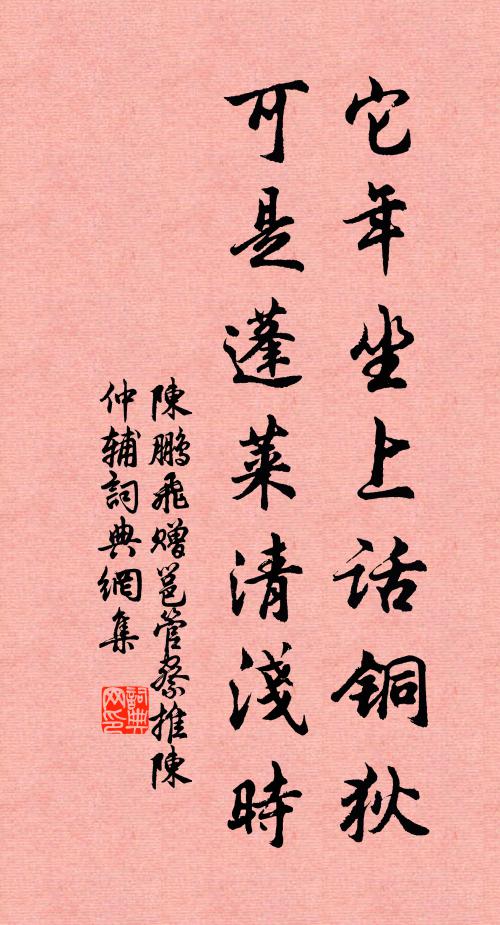 它年坐上话铜狄
可是蓬莱清淺時
陳鵬飛赠邕管察推陳
仲辅詞典網集
詞典网印